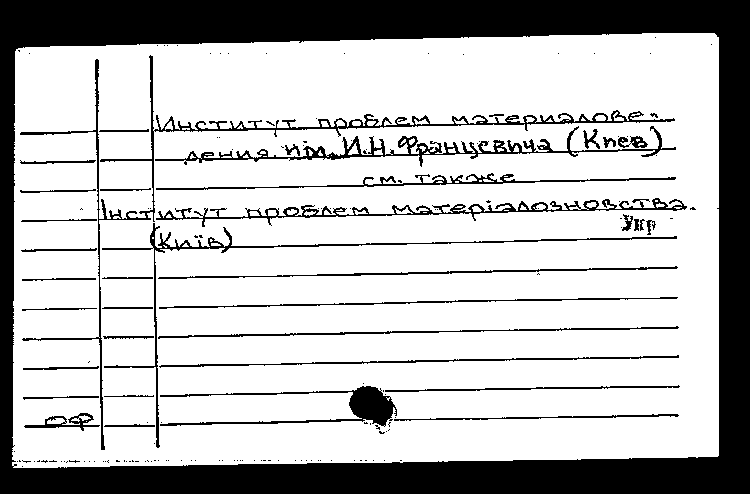 Институт проблем материалове-
дения им. И.Н. Францевича (Киев)
см. также
Інститут проблем матеріалознавства.
Укр
(Київ)
ОФ